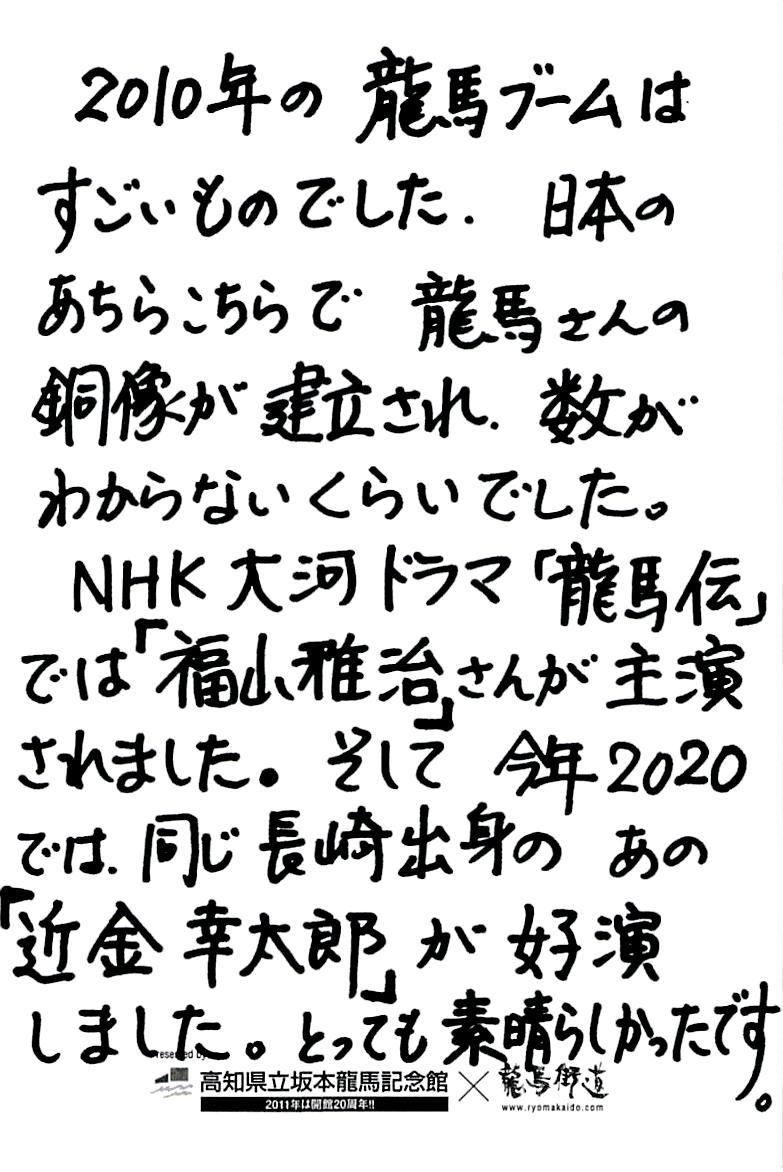 2010年の 龍馬ブームは
すごいものでした. 日本の
あちらこちらで 龍馬さんの
銅像が 建立され. 数が
わからないくらいでした。
NHK 大河ドラマ「龍馬伝」
では「福山雅治」さんが 主演
されました。そして 今年2020
では. 同じ 長崎出身の あの
「近金 幸太郎」が 好演
しました。とっても 素晴らしかったです。
Presented by
高知県立坂本龍馬記念館 × 龍馬街道
2011年は開館20周年!! www.ryomakaido.com